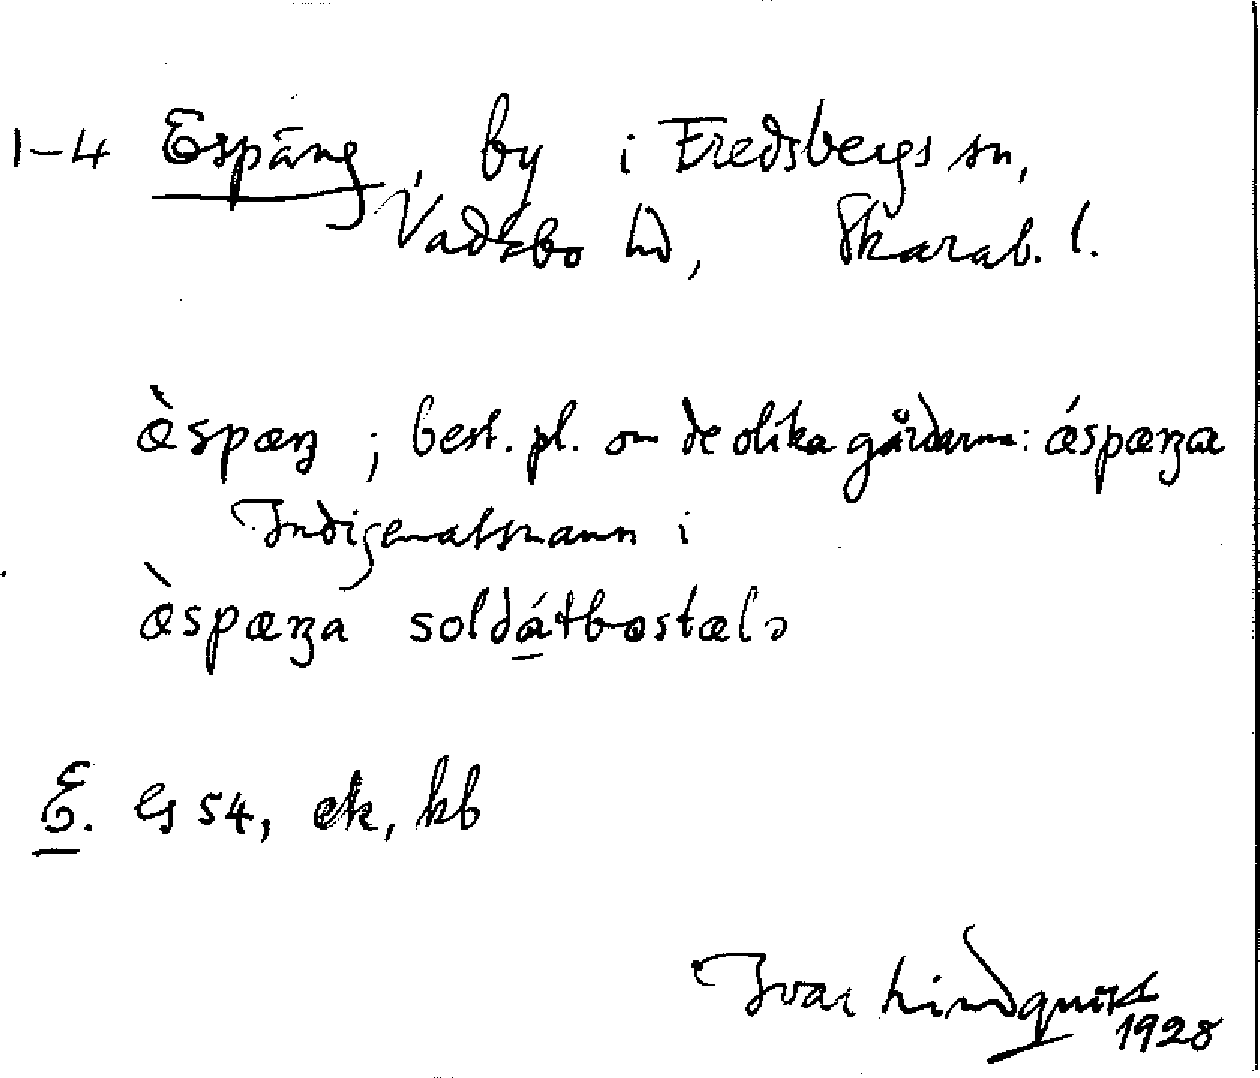 1-4 Espäng, by i Fredsbergs sn,
Vadsbo hd, Skarab. l.
æ̀spæŋ ; best. pl. om de olika gårdarna: ǽspæŋa
Indigenatsnamn i
æ̀spæŋa soldátbostælə
E. Gs 54, ek, kb
Ivar Lindquist
1928